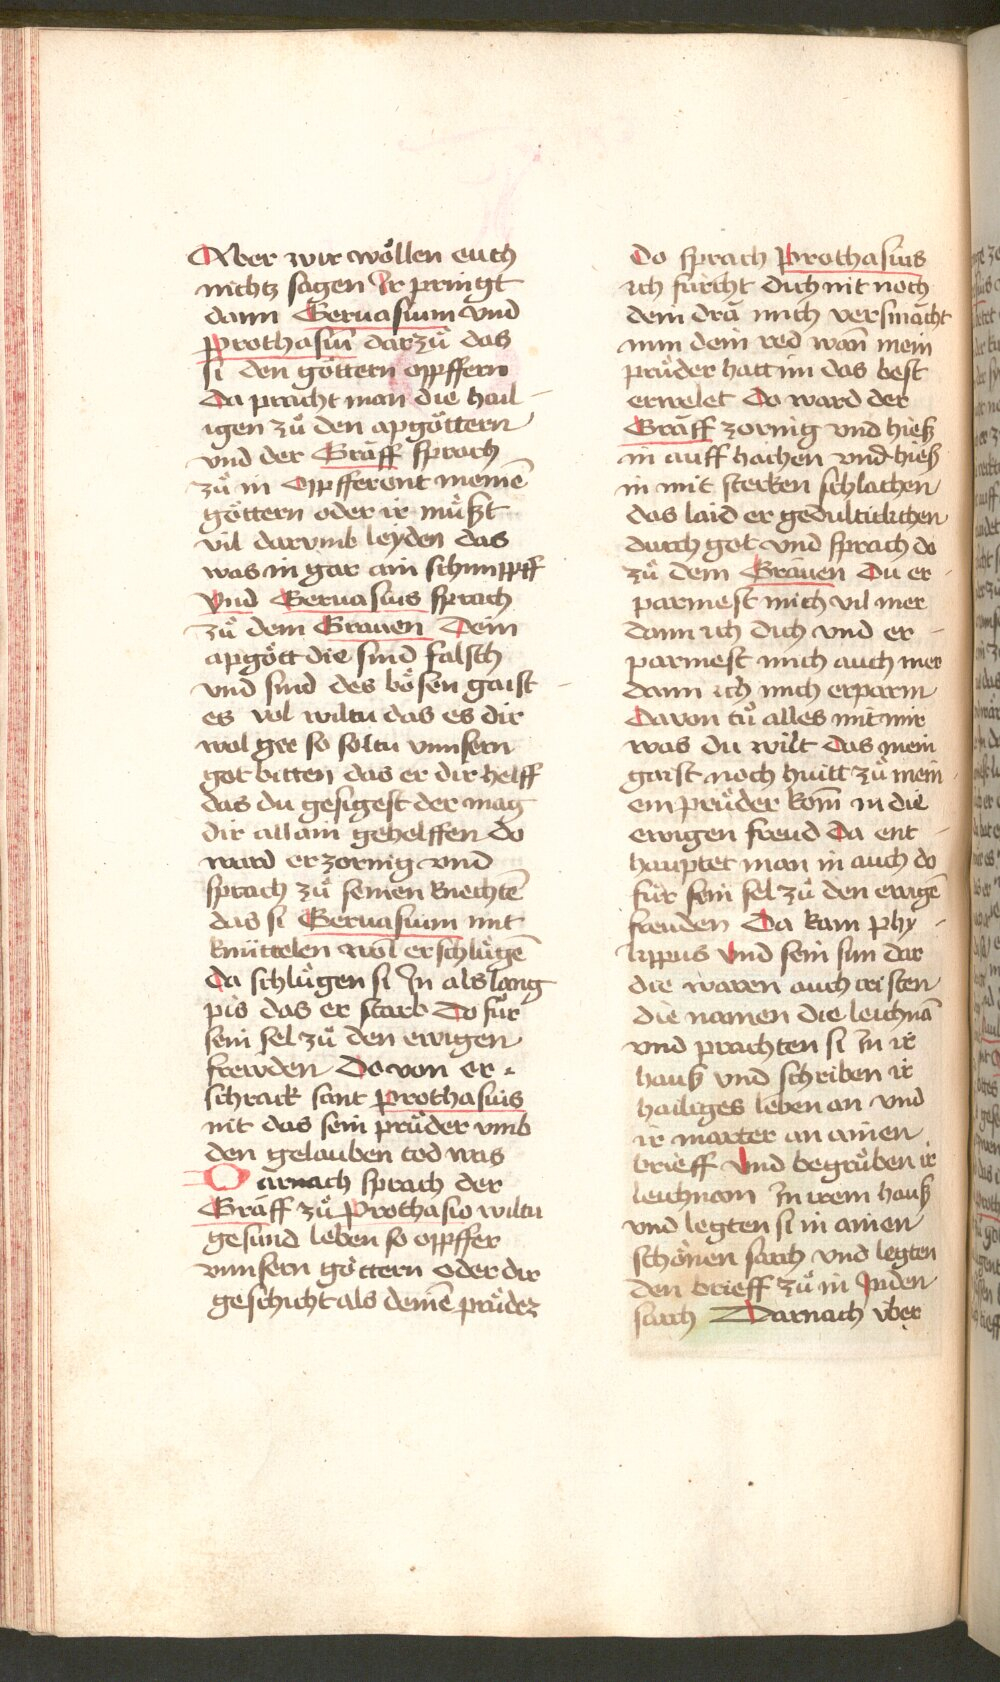 Aber wir wöllen euch
nichtz sagen Ir pringt
dann Geruasium vnd
Prothasiū darzů das
si den göttern opffern
Da pracht man die hail-
igen zů den apgöttern
vnd der Gräff sprach
zů in Opfferent meinē
göttern oder ir můszt
vil darvmb leyden das
was in gar ain schimpff
Vnd Geruasius sprach
zů dem Grauen Dein
apgött die sind falsch
vnd sind des bösen gaist
es vol wiltu das es dir
wol gee so soltu vnnsern
got bitten das er dir helff
das du gesigest der mag
dir allain gehelffen Do
ward er zornig vnd
sprach zů seinen knechtē
das si Geruasium mit
knüttelen wol erschlůgē
Da schlůgen si In als lang
pis das er starb Do fůr
sein sel zů den ewigen
frewden Do von er-
schrack sant Prothasius
nit das sein průder vmb
den gelauben tod was
Darnach sprach der
Gräff zů Prothasio wiltu
gesund leben so opffer
vnnsern göttern oder dir
geschicht als deinē průder
Do sprach Prothasius
ich fürcht dich nit noch
dem drā mich versmächt
nun dein red wan̄ mein
průder hatt im das best
erwelet Do ward der
Gräff zornig vnd hiesz
in auff hachen vnd hiesz
in mit stecken schlachen
das laid er gedultiklichen
durch got vnd sprach do
zů dem Grauen Du er-
parmest mich vil mer
dann ich dich vnd er-
parmest mich auch mer
dann ich mich erparm
Davon tů alles mit mir
was du wilt das mein
gaist noch huitt zů mein-
em průder kom̄ in die
ewigen freud Da ent-
hauptet man in auch do
fůr sein sel zů den ewigē
freuden Da kam phy-
lippus Vnd sein sun dar
die waren auch cristen
die namen die leichnā
vnd prachten si In ir
hausz vnd schriben ir
hailiges leben an vnd
ir marter an ainen
brieff Vnd begrůben ir
leichnam In irem hausz
vnd legten si in ainen
schönen sarch vnd legten
den brieff zů in In den
sarch Darnach vber